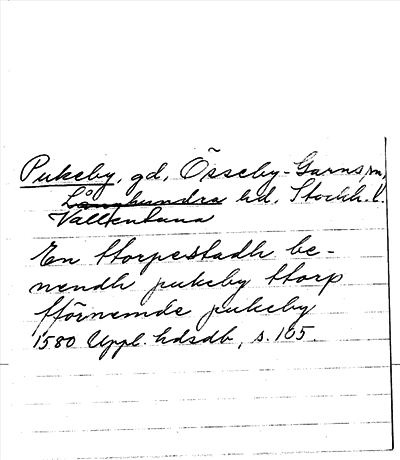 Pukeby, gd, Össeby-Garns sn,
Långhundra hd, Stockh. l.
Vallentuna
En ttorpestadh be-
nendh pukeby ttorp
fförnemde pukeby
1580 Uppl. hdsdb, s. 165.